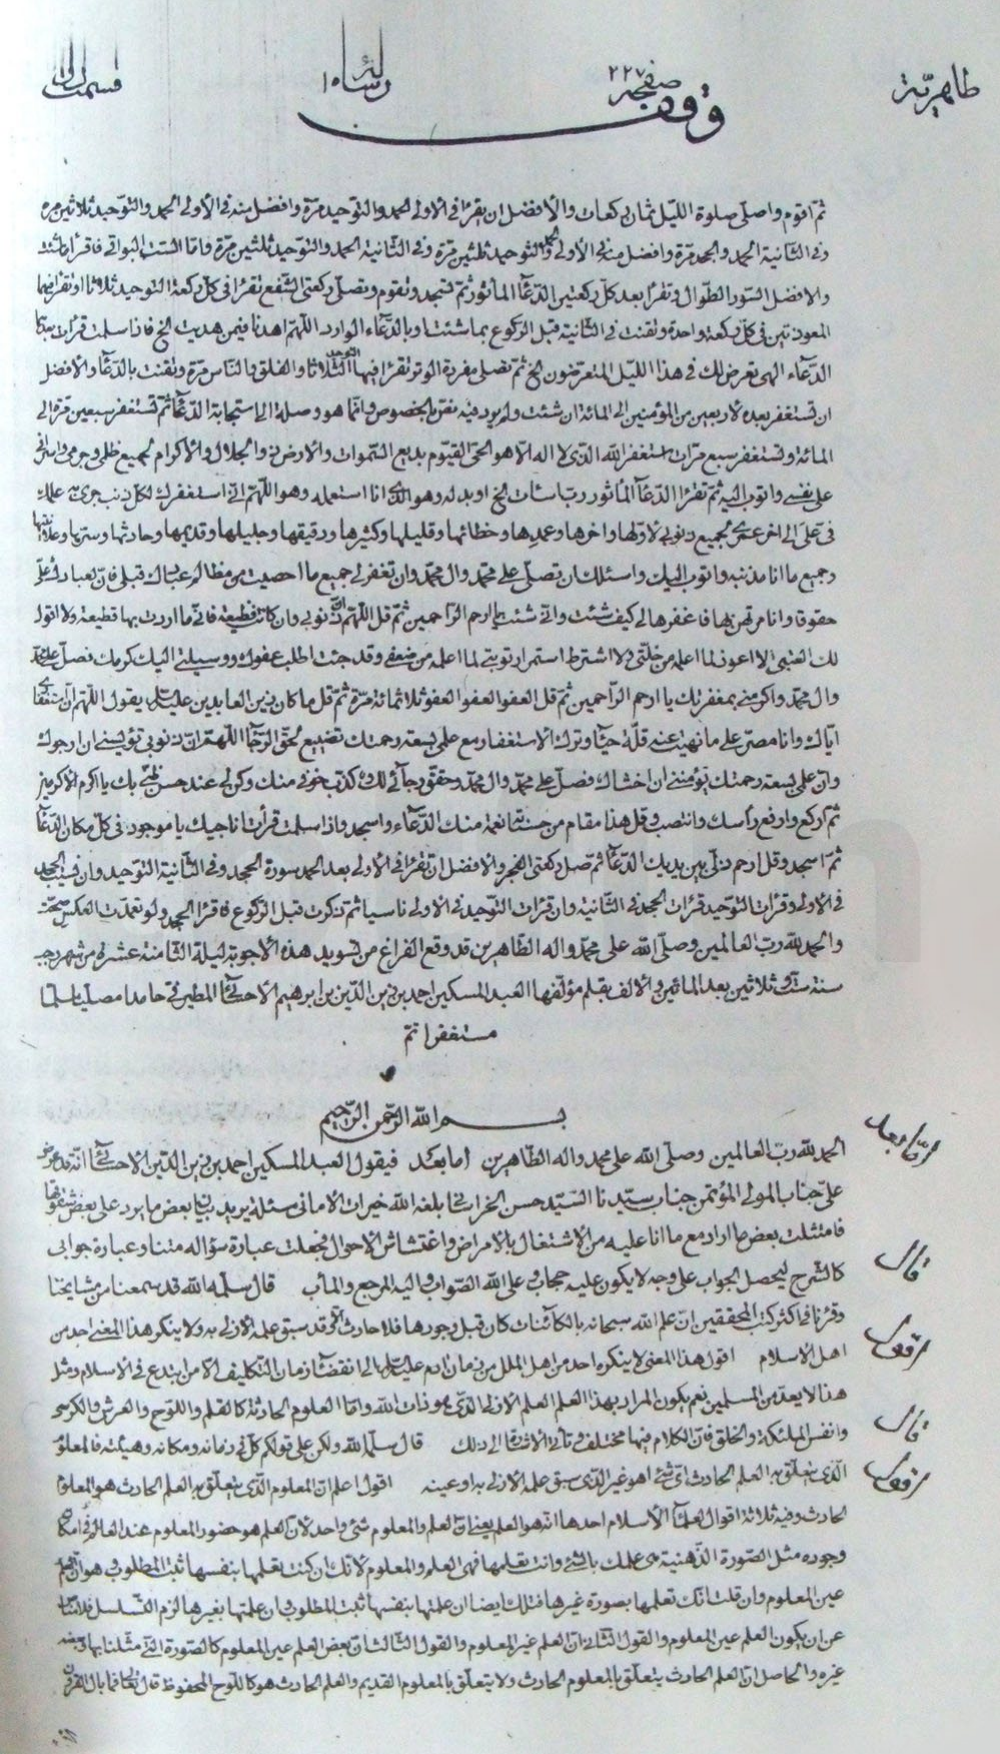 طاهريّة
صفحه ٢٢٧
رسالهٔ ١
قسمت اول
وقف
ثم اقوم واصلى صلوة الليل ثمان ركعات والافضل ان يقرأ فى الاولى الحمد والتوحيد مرّة وافضل منه فى الاولى الحمد والتوحيد ثلاثين مرة
وفى الثانية الحمد والجحد مرّة وافضل منه فى الاولى الحمد والتوحيد ثلثين مرّة وفى الثانية الحمد والتوحيد ثلثين مرّة وامّا الست البواقى فاقرأ ما شئت
والافضل السور الطوال وتقرأ بعد كل ركعتين الدعاء المأثور ثم تسجد وتقوم وتصلى ركعتى الشفع تقرأ فى كل ركعة التوحيد ثلاثا او تقرأ فيهما
المعوذتين فى كل ركعة واحدة وتقنت فى الثانية قبل الركوع بما شئت او بالدعاء الوارد اللهم اهدنا فيمن هديت الخ فاذا سلمت قرأت بعدها
الدعاء الهى تعرض لك فى هذا الليل المتعرضون الخ ثم تصلى مفردة الوتر تقرأ فيها التوحيد ثلاثا والفلق والناس مرّة وتقنت بالدعاء والافضل
ان تستغفر بعده لاربعين من المؤمنين الى المائة ان شئت ولم يرد فيه نصّ بالخصوص وانّما هو وصلة الى استجابة الدعاء ثم تستغفر سبعين مرّة الى
المائة وتستغفر سبع مرّات استغفر الله الذى لا اله الا هو الحى القيوم بديع السموات والارض ذو الجلال والاكرام لجميع ظلمى وجرمى واسرافى
على نفسى واتوب اليه ثم تقرأ الدعاء المأثور ربّ اسأت الخ او بدله وهو الذى انا استعمله وهو اللهم انى استغفرك لكل ذنب جرى به علمك
فىّ وعلىّ الى اخر عمرى بجميع ذنوبى لاولها واخرها وعمدها وخطائها وقليلها وكثيرها ودقيقها وجليلها وقديمها وحادثها وسرّها وعلانيتها
وجميع ما انا مذنبه واتوب اليك واسئلك ان تصلى على محمد وال محمد وان تغفر لى جميع ما احصيت من مظالم عبادك قبلى فان لعبادك علىّ
حقوقا وانا مرتهن بها فاغفرها لى كيف شئت وانى شئت يا ارحم الراحمين ثم قل اللهم ان ذنوبى وان كانت فظيعة فانى ما اردت بها قطيعة ولا اقول
لك العتبى لا اعود لما اعلمه من خلّتى ولا اشترط استمرار توبتى لما اعلمه من ضعفى وقد جئت اطلب عفوك ووسيلتى اليك كرمك فصل على محمد
وال محمد واكرمنى بمغفرتك يا ارحم الراحمين ثم قل العفو العفو العفو ثلاثمائة مرّة ثم قل ما كان زين العابدين عليه السلام يقول اللهم ان استغفارى
اياك وانا مصرّ على ما نهيت عنه قلّة حياء وترك الاستغفار مع علمى بسعة رحمتك تضييع لحقّ الرجاء اللهم ان ذنوبى تؤيسنى ان ارجوك
وان علمى بسعة رحمتك يؤمننى ان اخشاك فصلّ على محمد وال محمد وحقق رجائى لك وكذب خوفى منك وكن لى عند حسن ظنى بك يا اكرم الاكرمين
ثم اركع وارفع رأسك وانتصب وقل هذا مقام من حسناته نعمة منك الدعاء واسجد واذا سلمت قرأت اناجيك يا موجود فى كل مكان الدعاء
ثم اسجد وقل ارحم ذلى بين يديك الدعاء ثم صل ركعتى الفجر والافضل ان تقرأ فى الاولى بعد الحمد سورة الجحد وفى الثانية التوحيد وان نسيت الجحد
فى الاولى وقرأت التوحيد قرأت الجحد فى الثانية وان قرأت التوحيد فى الاولى ناسيا ثم ذكرت قبل الركوع فاقرأ الجحد ولو تعمدت العكس صحّت
والحمد لله رب العالمين وصلى الله على محمد واله الطاهرين قد وقع الفراغ من تسويد هذه الاجوبة ليلة الثامنة عشرة من شهر رجب
سنة ستّ وثلاثين بعد المائتين والالف بقلم مؤلفها العبد المسكين احمد بن زين الدين بن ابرهيم الاحسائى المطيرفى حامدا مصليا مسلما
مستغفرا تم
بسم الله الرحمن الرحيم
الحمد لله رب العالمين وصلى الله على محمد واله الطاهرين امّا بعد فيقول العبد المسكين احمد بن زين الدين الاحسائى انه قد عرض
امّا بعد
علىّ جناب المولى المؤتمن جناب سيدنا السيد حسن الخراسانى بلغه الله خيرات الامانى مسئلة يريد بيان بعض ما يرد على بعض شقوقها
فامتثلت بعض ما اراد مع ما انا عليه من الاشتغال بالامراض واغتشاش الاحوال فجعلت عبارة سؤاله متنا وعبارة جوابى
كالشرح ليحصل الجواب على وجه لا يكون عليه حجاب وعلى الله الصواب واليه المرجع والمآب قال سلمه الله قد سمعنا من مشايخنا
قال
وقرأنا فى اكثر كتب المحققين انّ علم الله سبحانه بالكائنات كان قبل وجودها فلا حادث الا وقد سبق علمه الازلى به ولا ينكر هذا المعنى احد من
اهل الاسلام اقول هذا المعنى لا ينكره احد من اهل الملل من زمان ادم عليه السلام الى انقضاء زمان التكليف الا من ابتدع فى الاسلام ومثل
اقول
هذا لا يعدّ من المسلمين نعم يكون المراد بهذا العلم العلم الازلى الذى هو ذات الله وامّا العلوم الحادثة كالقلم واللوح والعرش والكرسى
وانفس الملئكة والخلق فان الكلام فيها مختلف وتأتى الاشارة الى ذلك قال سلمه الله ولكن على قولكم كل فى زمانه ومكانه وهيئته فالمعلوم
قال
الذى يتعلّق به العلم الحادث اىّ شئ اهو غير الذى سبق علمه الازلى به او عينه اقول اعلم انّ المعلوم الذى يتعلّق به العلم الحادث هو المعلوم
اقول
الحادث وفيه ثلاثة اقوال لعلماء الاسلام احدها انه هو العلم يعنى ان العلم والمعلوم شئ واحد لان العلم هو حضور المعلوم عند العالم فى امكان
وجوده مثل الصورة الذهنية هى علمك بالشئ وانت تعلمها فهى العلم والمعلوم لانك ان كنت تعلمها بنفسها ثبت المطلوب وهو ان العلم
عين المعلوم وان قلت انك تعلمها بصورة غيرها فتلك ايضا ان علمتها بنفسها ثبت المطلوب وان علمتها بغيرها لزم التسلسل فلا مناص
عن ان يكون العلم عين المعلوم والقول الثانى ان العلم غير المعلوم والقول الثالث ان بعض العلم عين المعلوم كالصورة التى مثلنا بها وبعضه
غيره والحاصل ان العلم الحادث يتعلّق بالمعلوم الحادث ولا يتعلّق بالمعلوم القديم والعلم الحادث هو كاللوح المحفوظ قال تعالى فما بال القرون